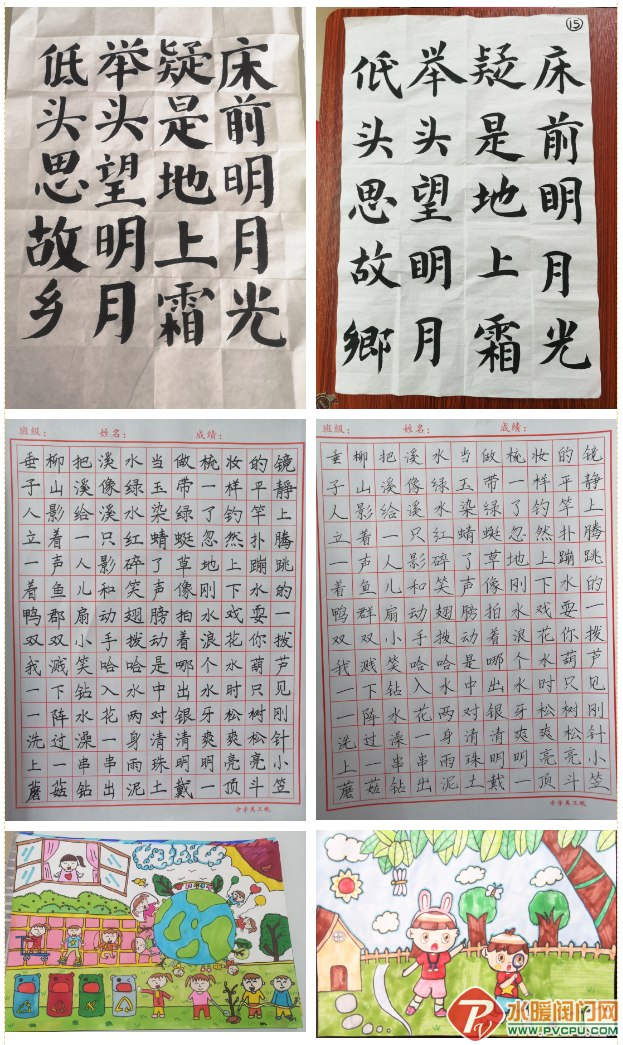 床前明月光
疑是地上霜
举头望明月
低头思故乡
15
床前明月光
疑是地上霜
举头望明月
低头思故鄉
班级： 姓名： 成绩：
垂柳把溪水当做梳妆的镜
子山溪像绿玉带一样平静
人影给溪水染绿了钓竿上
立着一只红蜻蜓忽然扑腾
一声人影碎了草地上蹦跳
着鱼儿和笑声像刚下水的
鸭郡扇动翅膀拍水戏耍一
双双小手拨动着浪花你拨
我溅笑哈哈是哪个水葫芦
一下钻入水中出水时只见
一阵水花两对银牙松树刚
洗过澡一身清清爽爽松针
上一串串雨珠明明亮亮小
蘑菇钻出泥土戴一顶斗笠
班级： 姓名： 成绩：
垂柳把溪水当做梳妆的镜
子山溪像绿玉带一样平静
人影给溪水染绿了钓竿上
立着一只红蜻蜓忽然扑腾
一声人影碎了草地上蹦跳
着鱼儿和笑声像刚下水的
鸭群扇动翅膀拍水戏耍一
双双小手拨动着浪花你拨
我溅笑哈哈是哪个水葫芦
一下钻入水中出水时只见
一阵水花两对银牙松树刚
洗过澡一身清清爽爽松针
上一串串雨珠明明亮亮小
蘑菇钻出泥土戴一顶斗笠
水暖阀门网
WWW.PVCPU.COM